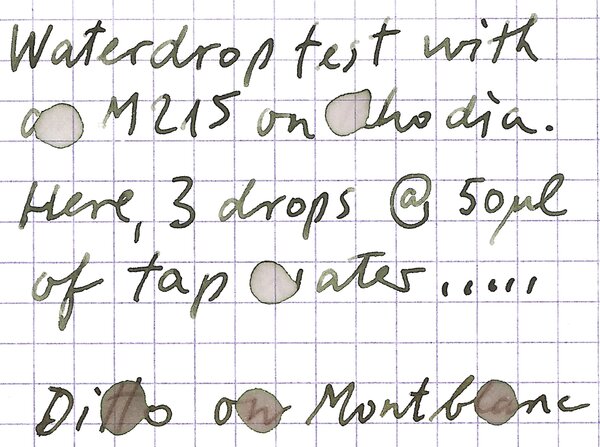 Waterdrop test with
a M215 on Rhodia.
Here, 3 drops @ 50µl
of tap water.....
Ditto on Montblanc